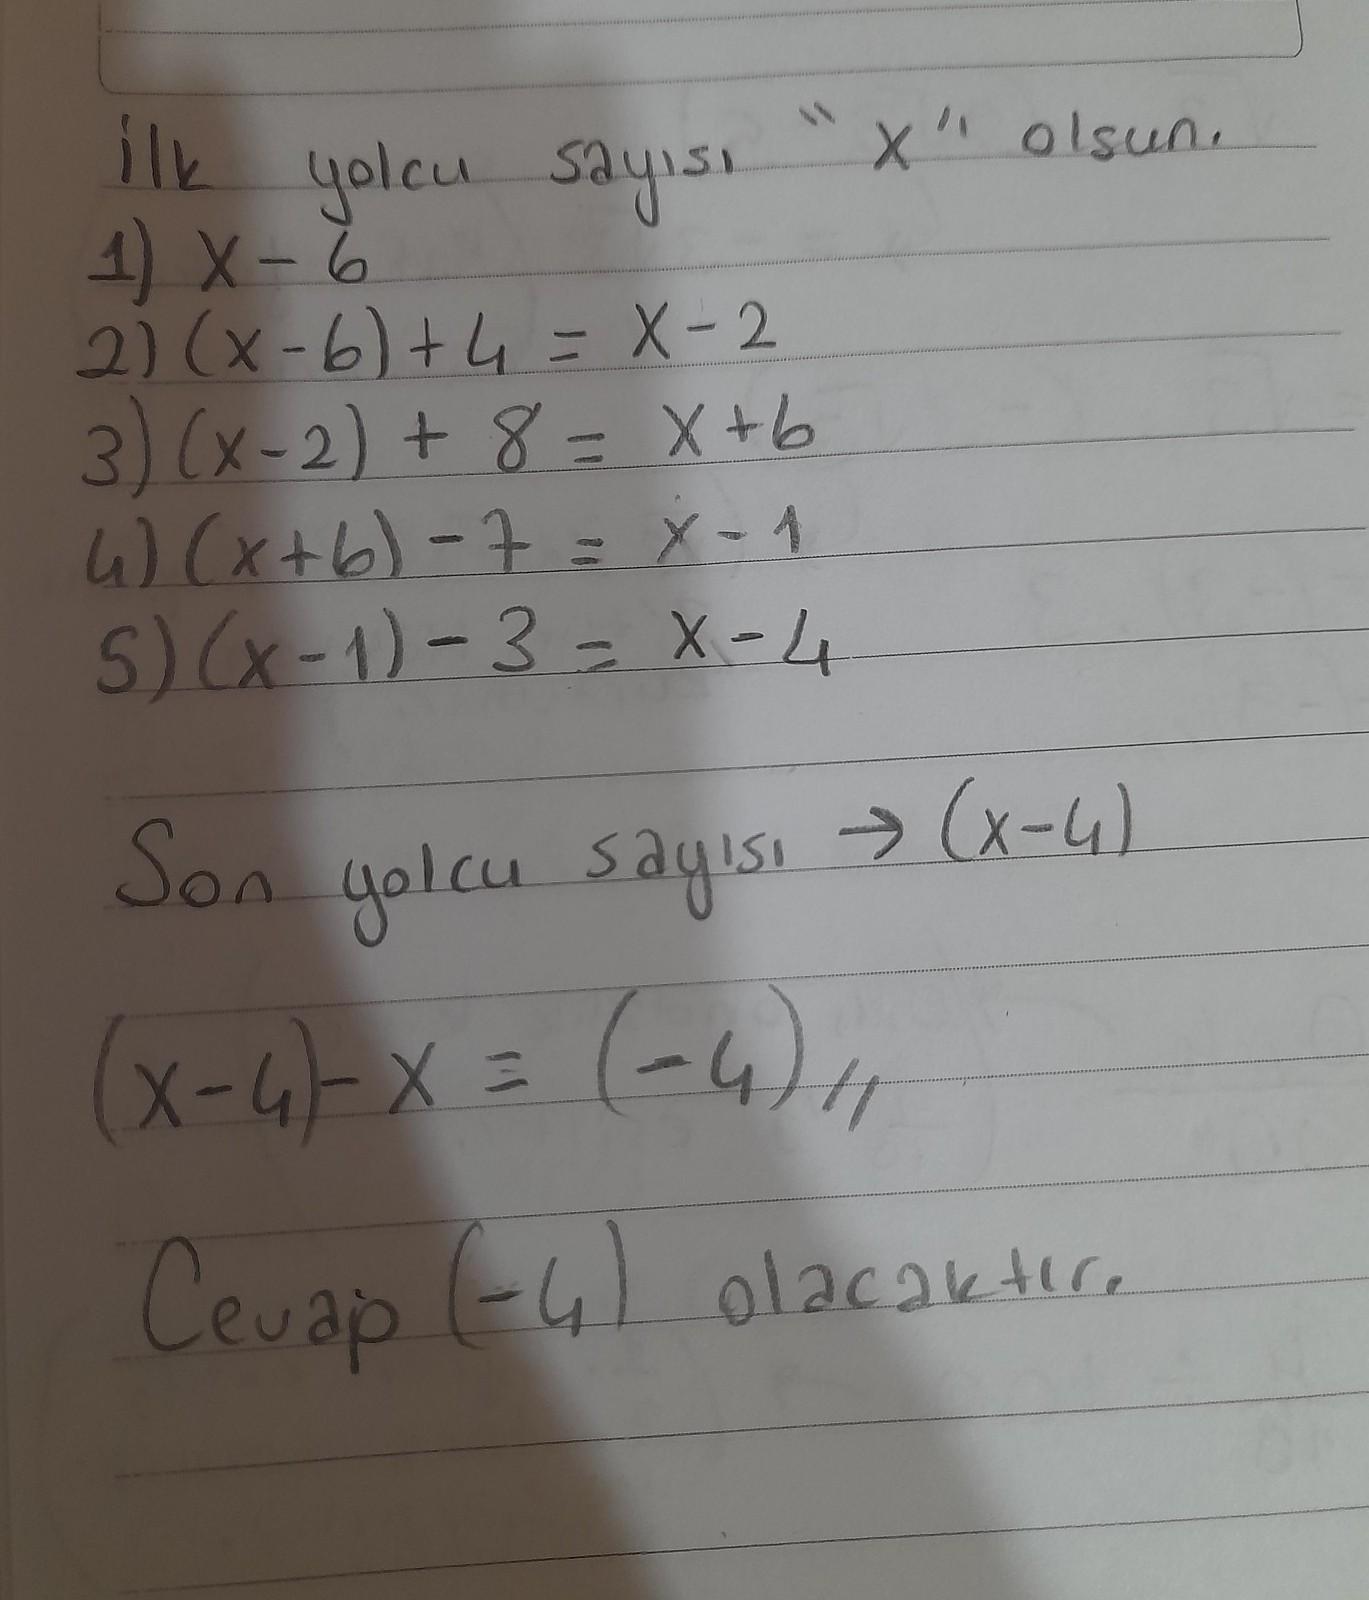 İlk yolcu sayısı "x" olsun.
1) x - 6
2) (x-6)+4 = x-2
3) (x-2) + 8 = x+6
4) (x+6) - 7 = x-1
5) (x-1) - 3 = x-4
Son yolcu sayısı → (x-4)
(x-4)-x = (-4)//
Cevap (-4) olacaktır.